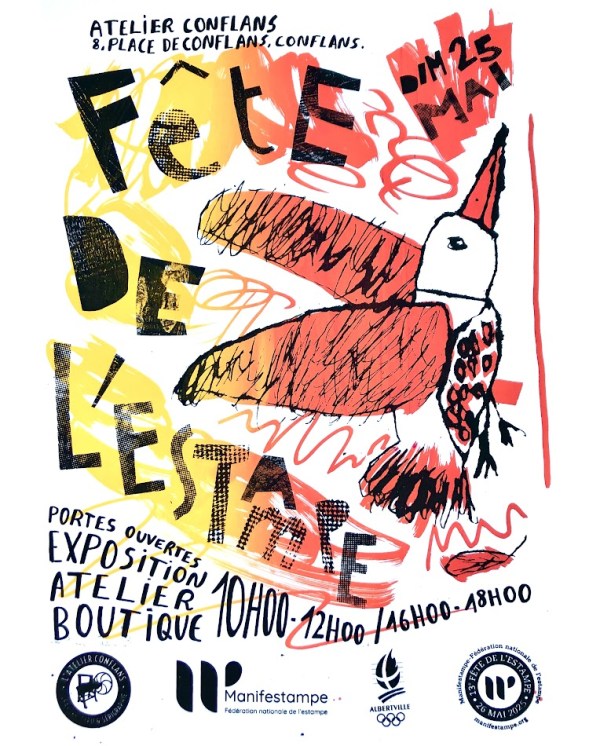 ATELIER CONFLANS
8, PLACE DE CONFLANS, CONFLANS.
DIM 25
MAI
FÊtE
DE
L'ESTAMPE
PORTES OUVERTES
EXPOSITION
ATELIER
BOUTIQUE 10H00-12H00 / 16H00-18H00
L'ATELIER CONFLANS
Manifestampe
Fédération nationale de l'estampe
ALBERTVILLE
Manifestampe-Fédération nationale de l'estampe
13e FÊTE DE L'ESTAMPE
26 MAI 2025
manifestampe.org